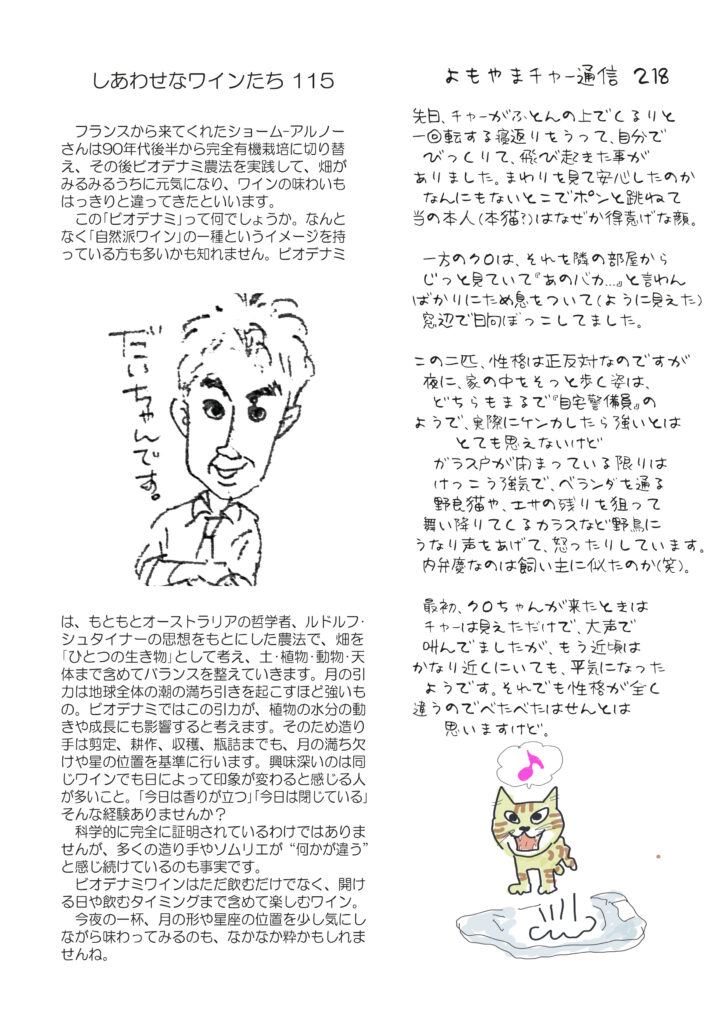 しあわせなワインたち 115
　フランスから来てくれたショーム-アルノー
さんは90年代後半から完全有機栽培に切り替
え、その後ビオデナミ農法を実践して、畑が
みるみるうちに元気になり、ワインの味わいも
はっきりと違ってきたといいます。
　この「ビオデナミ」って何でしょうか。なんと
なく「自然派ワイン」の一種というイメージを持
っている方も多いかも知れません。ビオデナミ
だいちゃんです。
は、もともとオーストラリアの哲学者、ルドルフ･
シュタイナーの思想をもとにした農法で、畑を
「ひとつの生き物」として考え、土･植物･動物･天
体まで含めてバランスを整えていきます。月の引
力は地球全体の潮の満ち引きを起こすほど強いも
の。ビオデナミではこの引力が、植物の水分の動
きや成長にも影響すると考えます。そのため造り
手は剪定、耕作、収穫、瓶詰までも、月の満ち欠
けや星の位置を基準に行います。興味深いのは同
じワインでも日によって印象が変わると感じる人
が多いこと。「今日は香りが立つ」「今日は閉じている」
そんな経験ありませんか？
　科学的に完全に証明されているわけではありま
せんが、多くの造り手やソムリエが“何かが違う”
と感じ続けているのも事実です。
　ビオデナミワインはただ飲むだけでなく、開け
る日や飲むタイミングまで含めて楽しむワイン。
　今夜の一杯、月の形や星座の位置を少し気にし
ながら味わってみるのも、なかなか粋かもしれま
せんね。
よもやまチャー通信 218
先日、チャーがふとんの上でくるりと
一回転する寝返りをうって、自分で
びっくりて、飛び起きた事が
ありました。まわりを見て安心したのか
なんにもないとこでポンと跳ねて
当の本人(本猫?)はなぜか得意げな顔。
一方のクロは、それを隣の部屋から
じっと見ていて『あのバカ…』と言わん
ばかりにため息をついて(ように見えた)
窓辺で日向ぼっこしてました。
この二匹、性格は正反対なのですが
夜に、家の中をそっと歩く姿は、
どちらもまるで『自宅警備員』の
ようで、実際にケンカしたら強いとは
とても思えないけど
ガラス戸が閉まっている限りは
けっこう強気で、ベランダを通る
野良猫や、エサの残りを狙って
舞い降りてくるカラスなど野鳥に
うなり声をあげて、怒ったりしています。
内弁慶なのは飼い主に似たのか(笑)。
最初、クロちゃんが来たときは
チャーは見えただけで、大声で
叫んでましたが、もう近頃は
かなり近くにいても、平気になった
ようです。それでも性格が全く
違うのでべたべたはせんとは
思いますけど。